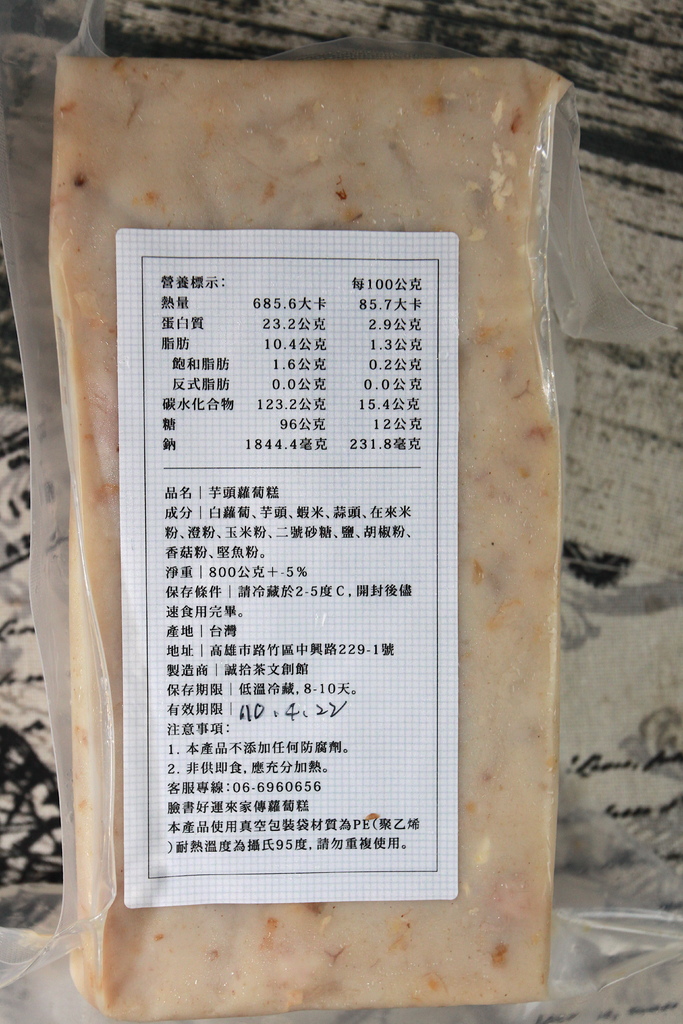 營養標示： 每100公克
熱量 685.6大卡 85.7大卡
蛋白質 23.2公克 2.9公克
脂肪 10.4公克 1.3公克
飽和脂肪 1.6公克 0.2公克
反式脂肪 0.0公克 0.0公克
碳水化合物 123.2公克 15.4公克
糖 96公克 12公克
鈉 1844.4毫克 231.8毫克
品名｜芋頭蘿蔔糕
成分｜白蘿蔔、芋頭、蝦米、蒜頭、在來米
粉、澄粉、玉米粉、二號砂糖、鹽、胡椒粉、
香菇粉、堅魚粉。
淨重｜800公克＋-5%
保存條件｜請冷藏於2-5度C，開封後儘
速食用完畢。
產地｜台灣
地址｜高雄市路竹區中興路229-1號
製造商｜誠拾茶文創館
保存期限｜低溫冷藏，8-10天。
有效期限｜110.4.22
注意事項：
1. 本產品不添加任何防腐劑。
2. 非供即食，應充分加熱。
客服專線：06-6960656
臉書好運來家傳蘿蔔糕
本產品使用真空包裝袋材質為PE(聚乙烯
)耐熱溫度為攝氏95度，請勿重複使用。